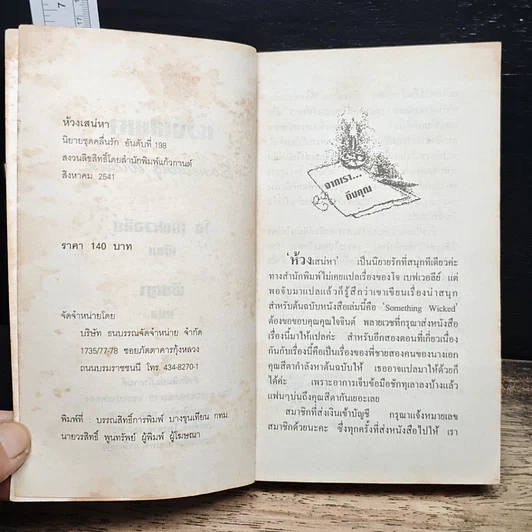 ห้วงเสน่หา
นิยายชุดคลื่นรัก อันดับที่ 198
สงวนลิขสิทธิ์โดยสำนักพิมพ์แก้วกานต์
สิงหาคม 2541
ราคา 140 บาท
จัดจำหน่ายโดย
บริษัท ธนบรรณจัดจำหน่าย จำกัด
1735/77-78 ซอยภัตตาคารกุ้งหลวง
ถนนบรมราชชนนี โทร. 434-8270-1
พิมพ์ที่ : บรรณสิทธิ์การพิมพ์ บางขุนเทียน กทม
นายวรสิทธิ์ พูนทรัพย์ ผู้พิมพ์ ผู้โฆษณา
จากเรา...
ถึงคุณ
'ห้วงเสน่หา' เป็นนิยายรักที่สนุกทีเดียวค่ะ
ทางสำนักพิมพ์ไม่เคยแปลเรื่องของโจ เบฟเวอลีย์ แต่
พอจับมาแปลแล้วก็รู้สึกว่าเขาเขียนเรื่องน่าสนุก
สำหรับต้นฉบับหนังสือเล่มนี้คือ 'Something Wicked'
ต้องขอขอบคุณคุณใจยินต์ พลายเวชที่กรุณาส่งหนังสือ
เรื่องนี้มาให้แปลค่ะ สำหรับอีกสองตอนที่เกี่ยวเนื่อง
กันกับเรื่องนี้คือเป็นเรื่องของพี่ชายสองคนของนางเอก
คุณสีดากำลังหาต้นฉบับให้ เธออาจแปลมาให้ด้วยก็
ได้ค่ะ เพราะอาการเจ็บข้อมือซักทุเลาลงบ้างแล้ว
แฟนๆบ่นถึงคุณสีดากันเยอะเลย
สมาชิกที่ส่งเงินเข้าบัญชี กรุณาแจ้งหมายเลข
สมาชิกด้วยนะคะ ซึ่งทุกครั้งที่ส่งหนังสือไปให้ เรา